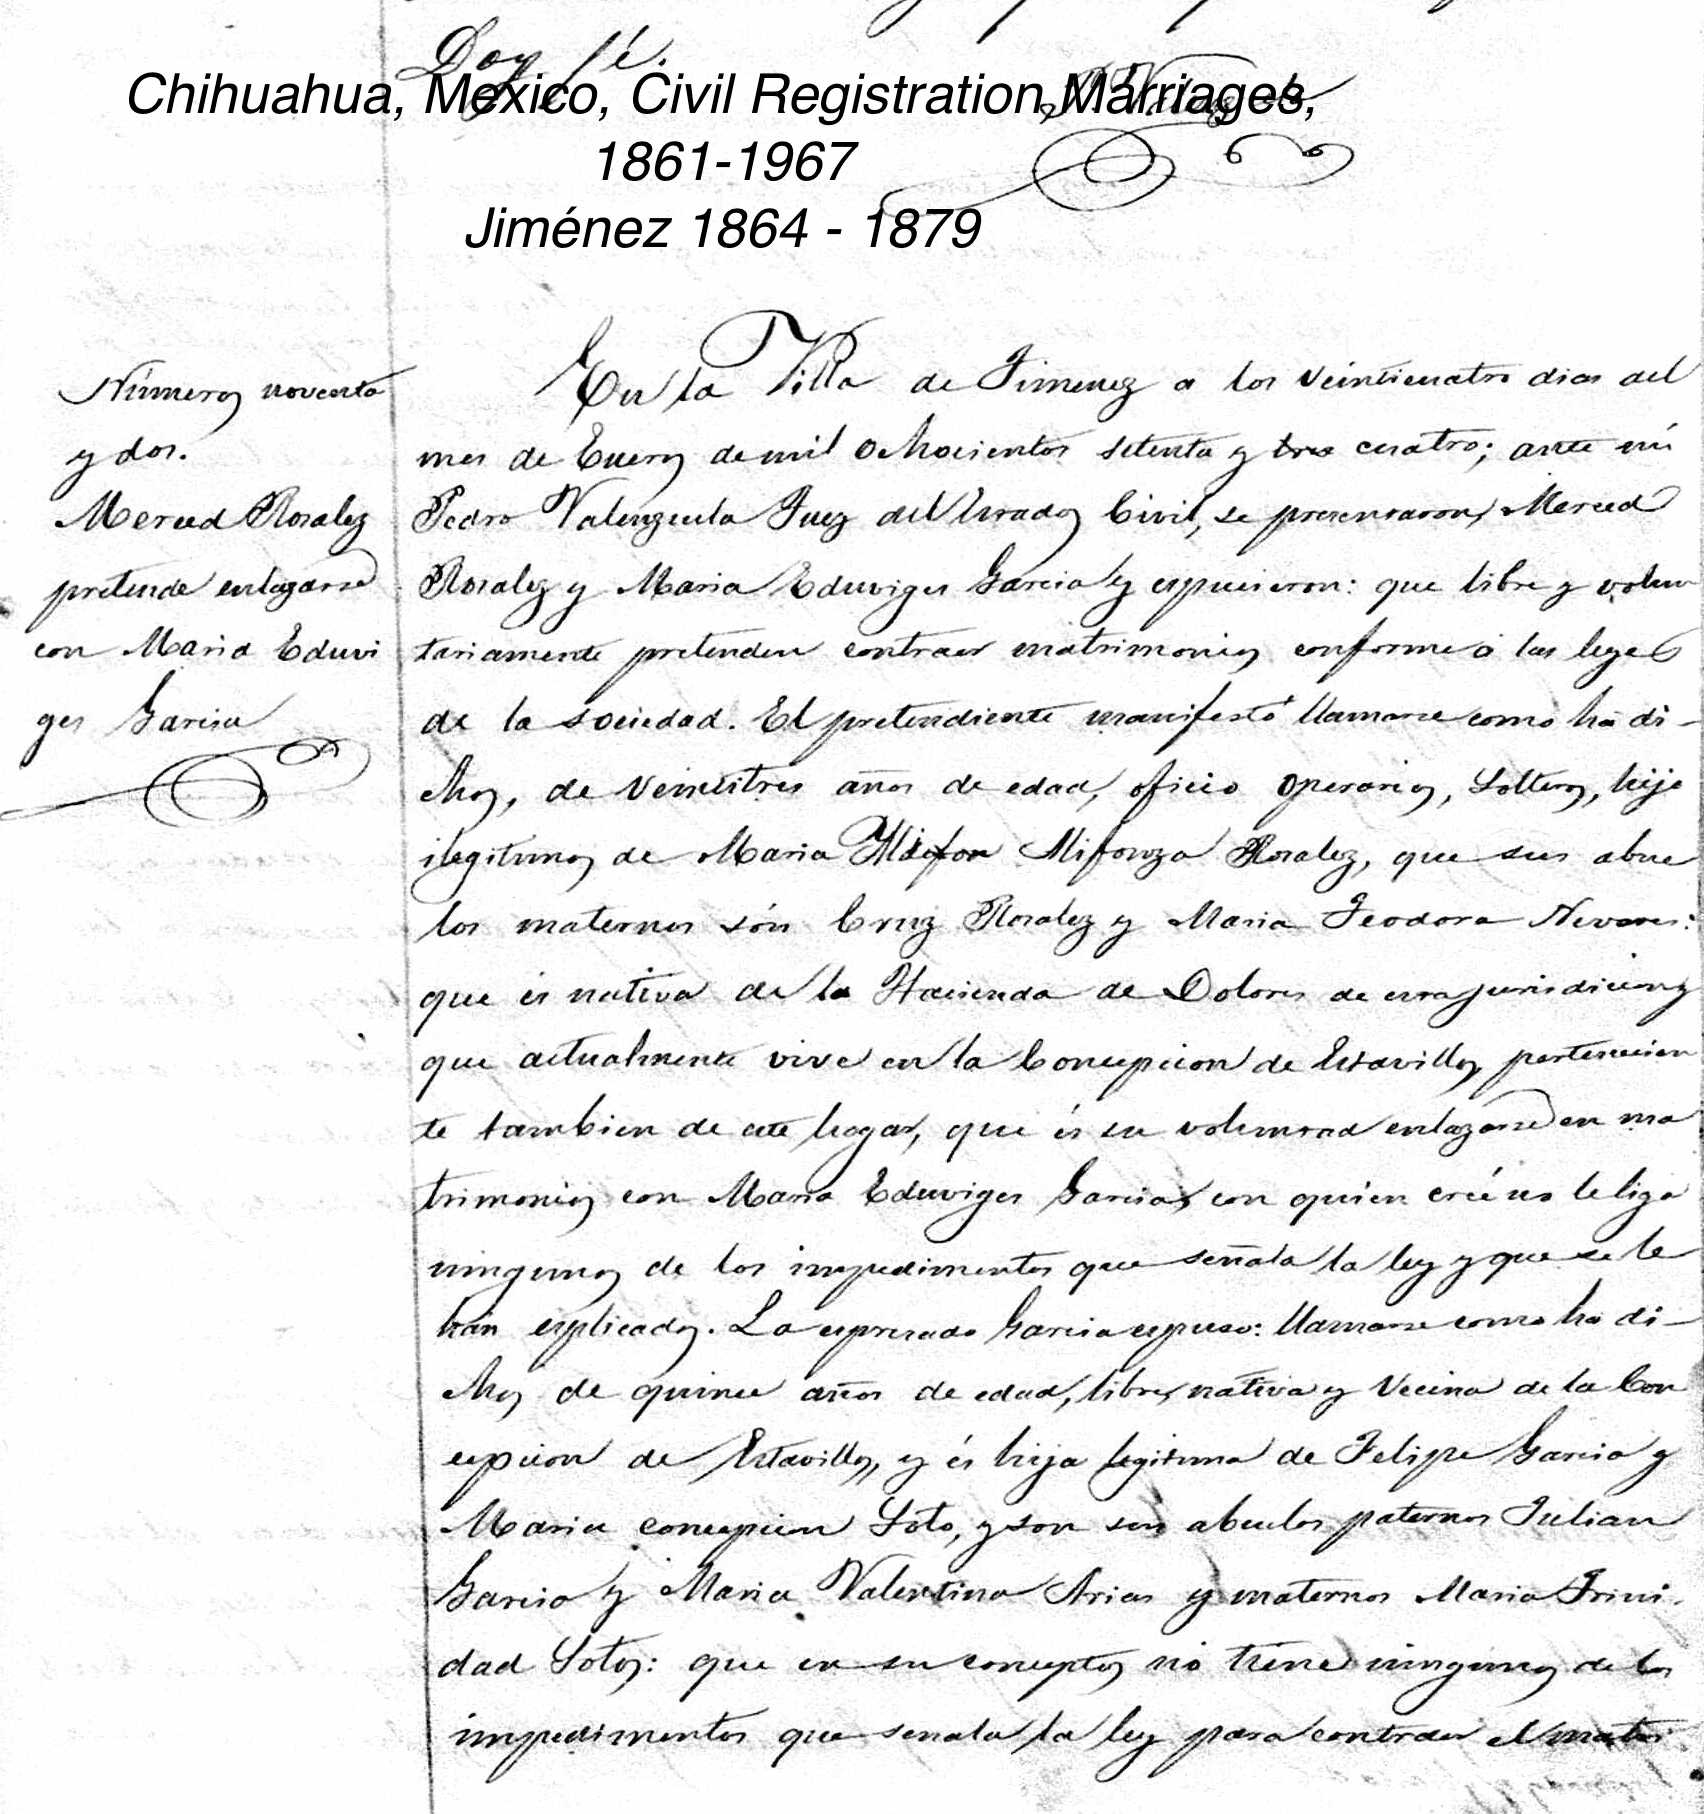 Doy fé.
Chihuahua, Mexico, Civil Registration Marriages,
1861-1967
Jiménez 1864 - 1879
Número noventa
y dos.
Merced Rosalez
pretende enlazarse
con Maria Eduvi
ges Garcia
En la Villa de Jimenez a los veinticuatro dias del
mes de Enero de mil ochocientos setenta y tres cuatro; ante mi
Pedro Valenzuela Juez del Estado Civil, se presentaron, Merced
Rosalez y Maria Eduviges Garcia y espusieron: que libre y volun
tariamente pretenden contraer matrimonio conforme á las leyes
de la sociedad. El pretendiente manifestó llamarse como ha di-
cho, de veintitres años de edad, oficio operario, Soltero, hijo
ilegitimo de Maria Ildefon Alifonza Rosalez, que sus abue
los maternos són Cruz Rosalez y Maria Teodora Nevares:
que és nativo de la Hacienda de Dolores de esta jurisdicion y
que actualmente vive en la Concepcion de Estavillo, pertenecien
te tambien de este lugar, que és su voluntad enlazarse en ma
trimonio con Maria Eduviges Garcia, con quien creé no le liga
ninguno de los impedimentos que señala la ley y que se le
han esplicado. La espresada Garcia espuso: llamarse como ha di-
cho, de quince años de edad, libre, nativa y vecina de la Con
cepcion de Estavillo, y és hija legitima de Felipe Garcia y
Maria concepcion Soto, y son sus abuelos paternos Julian
Garcia y Maria Valentina Arias y maternos Maria Trini.
dad Soto: que en su concepto no tiene ninguno de los
impedimentos que senala la ley para contraer el matri